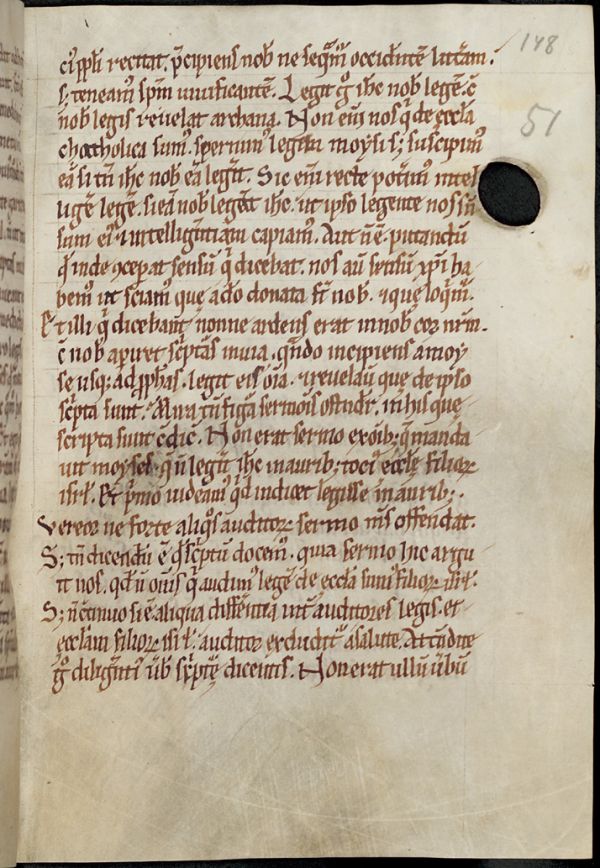 148
51
cui᷒ pp̄li recitat. p̄cipiens nob̄ ne seq̄m᷒ occidentē litt̄am.
s; teneam᷒ sp̄m uiuificantē. Legit g̊ ih̄c nob̄ legē. c̄
nob̄ legis reuelat archana. Non eni᷒ nos q̄ de eccl̄a
chatholica sum᷒. spernim᷒ legem moysi s; suscipim᷒
eā si tn̄ ih̄c nob̄ eā legat̄. Sic eni᷒ recte potim᷒ intel
ligē legē. si eā nob̄ legat̄ ih̄c. ut ipso legente nos sn̄
sum ei᷒ ⁊ intelligentiam capiam᷒. Aut n̄ ē putandū
q̄ inde c̄ceperat sensū q̄ dicebat. nos aū sensū xp̄i ha
bem᷒ ut sciam᷒ que a d̄o donata st̄ nob̄. ⁊ que loq̄m᷒.
Et illi q̄ dicebant̄ nonne ardens erat in nob̄ cor nr̄m.
c̄ nob̄ apiret sc̄ptas in uia. q̄ndo incipiens a moy
se usq; ad p̄phās. legit eis om̄ia. ⁊ reuelauit que de ipso
sc̄pta sunt. Mira tn̄ figa sermonis ostendit̄. in his que
scripta sunt c̄ dic̄. Non erat sermo ex om̄ib; q̄ manda
uit moyses. q̄ n̄ legit̄ ih̄c in aurib; toci᷒ eccl̄e filioꝝ
isrl̄. Et p̄mo uideam᷒ q̄d indicet legisse in aurib;.
Vereor ne forte aliq̄s auditoꝝ sermo nr̄s offendat.
S; tn̄ dicendū ē q̄ sc̄ptū docem᷒. quia sermo hic argu
it nos. q̄d n̄ om̄s q̄ audim᷒ legē de eccl̄a sum᷒ filioꝝ isrl̄.
S; n̄ c̄tinuo si ē aliqua differentia int̄ auditores legis. et
eccl̄am filioꝝ isrl̄. auditor excludit̄ a salute. Attendite
g̊ diligenti᷒ ūb̄ sc̄pt̄e dicentis. Non erat ullū ūbū